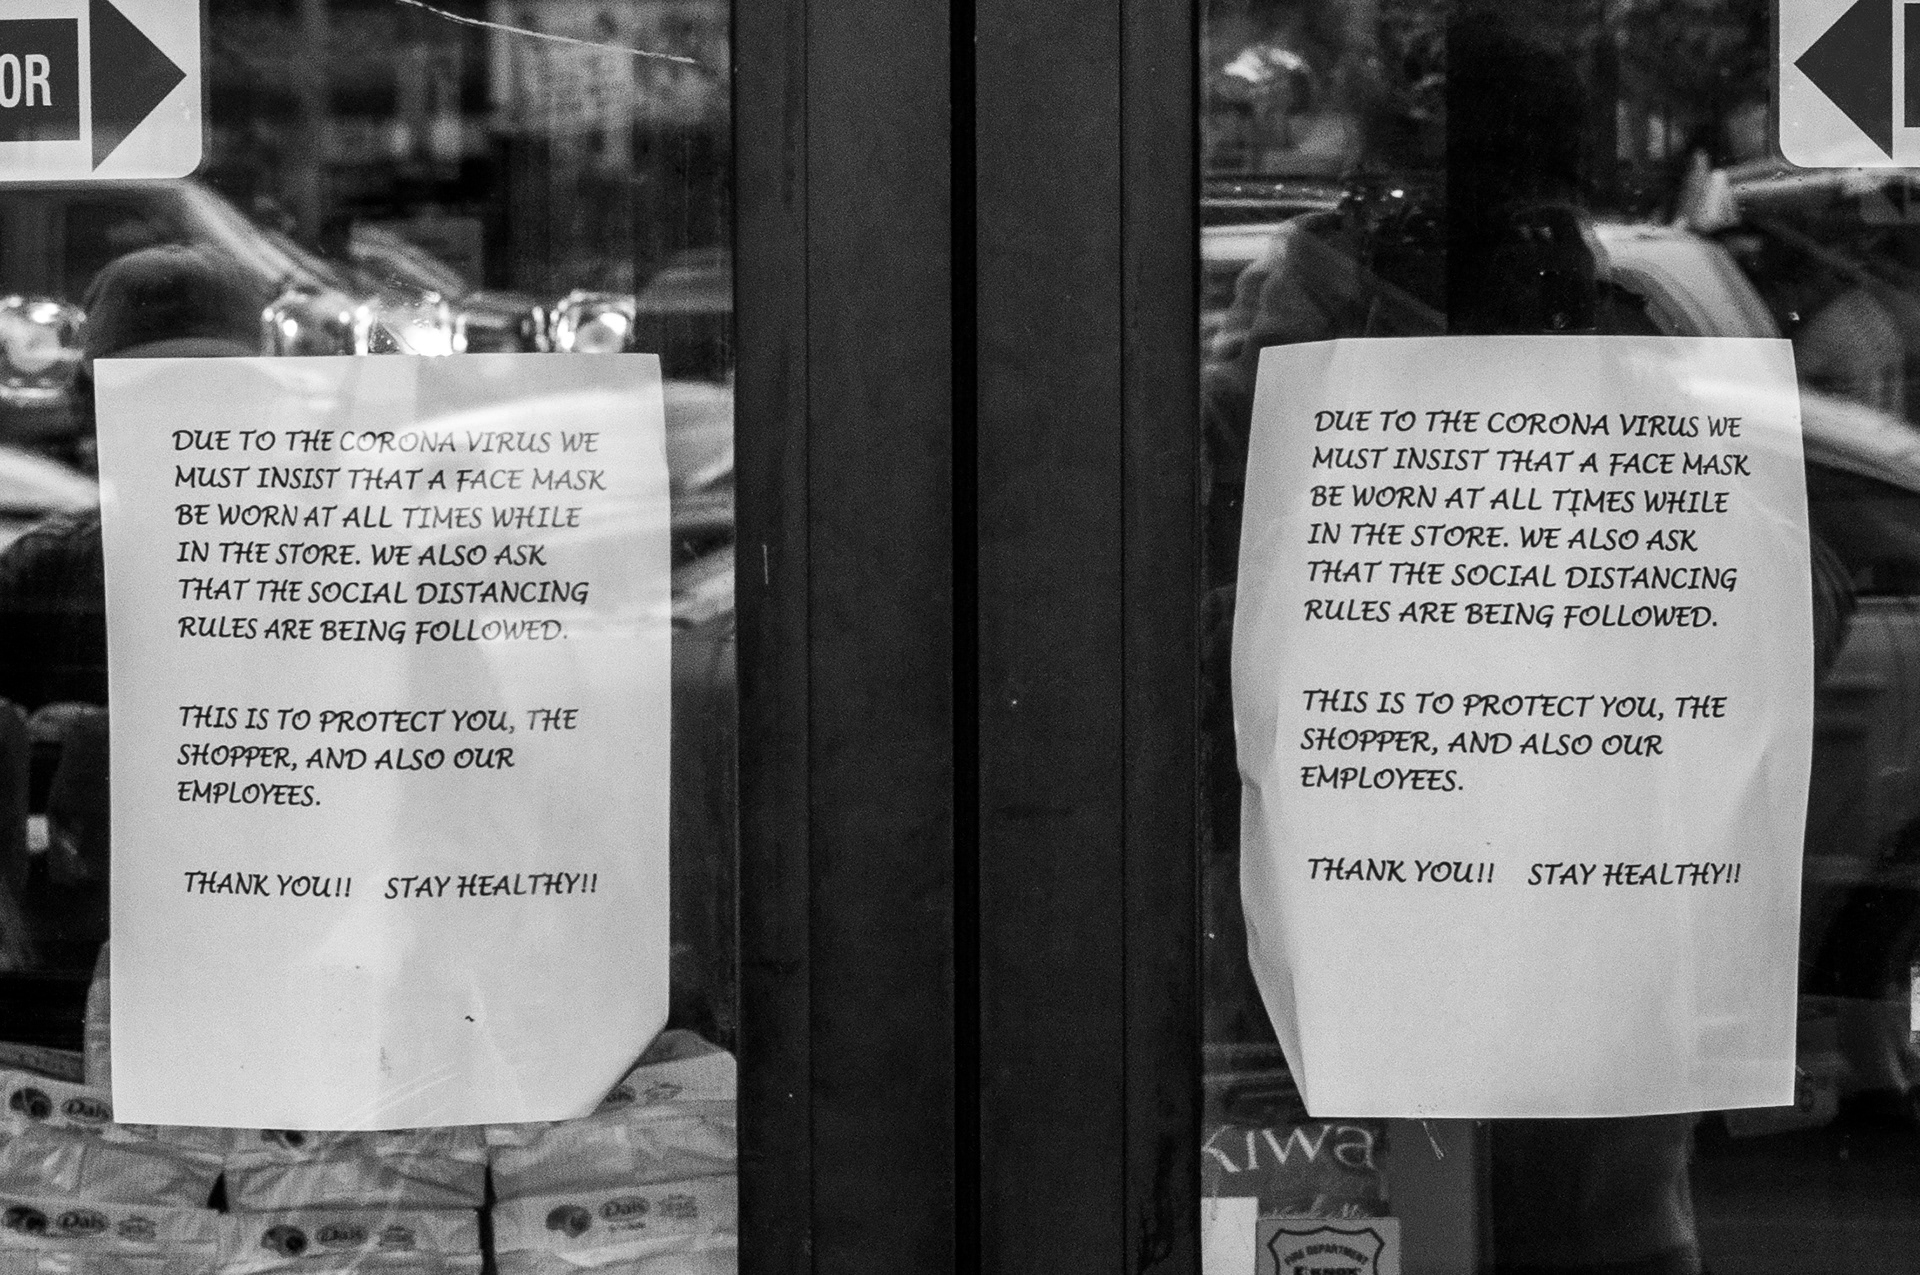 OR
DUE TO THE CORONA VIRUS WE
MUST INSIST THAT A FACE MASK
BE WORN AT ALL TIMES WHILE
IN THE STORE. WE ALSO ASK
THAT THE SOCIAL DISTANCING
RULES ARE BEING FOLLOWED.
THIS IS TO PROTECT YOU, THE
SHOPPER, AND ALSO OUR
EMPLOYEES.
THANK YOU!! STAY HEALTHY!!
Dals
Dals
Dals
Dals
DUE TO THE CORONA VIRUS WE
MUST INSIST THAT A FACE MASK
BE WORN AT ALL TIMES WHILE
IN THE STORE. WE ALSO ASK
THAT THE SOCIAL DISTANCING
RULES ARE BEING FOLLOWED.
THIS IS TO PROTECT YOU, THE
SHOPPER, AND ALSO OUR
EMPLOYEES.
THANK YOU!! STAY HEALTHY!!
KIWa
FIRE DEPARTMENT